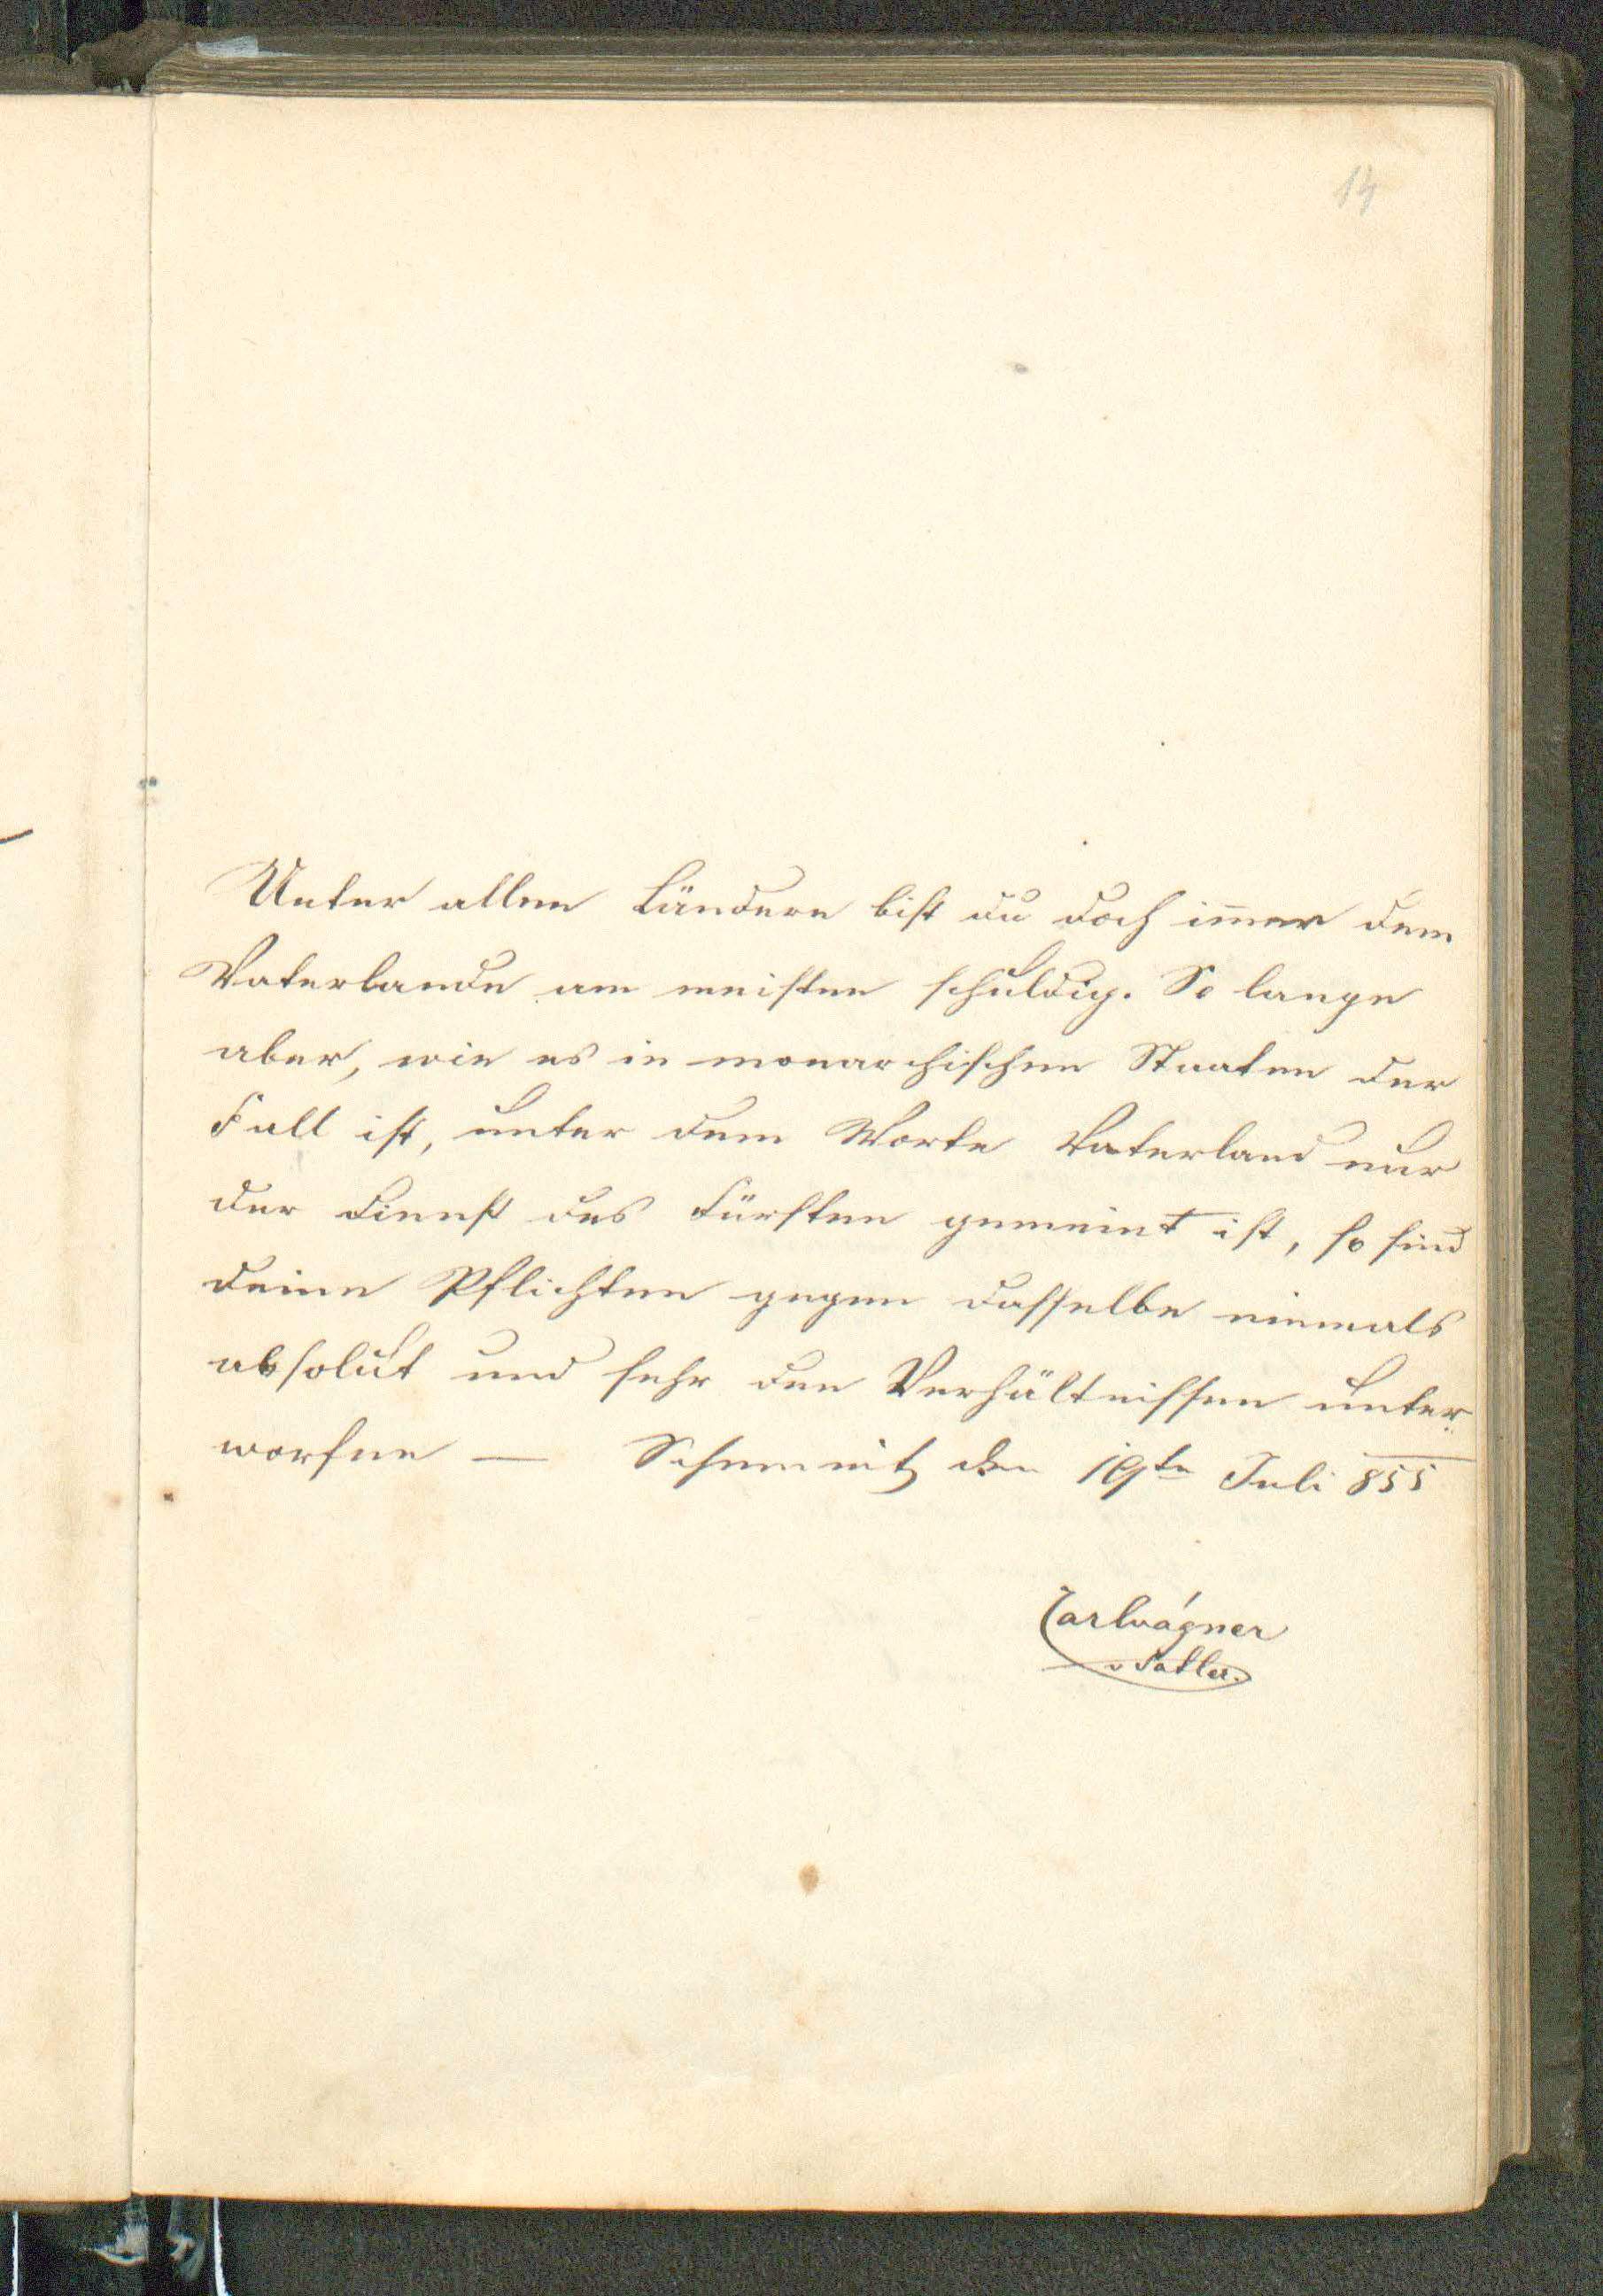 14
Unter allen Ländern bist du doch im̅er dem
Vaterlande am meisten schuldig. So lange
aber, wie es in monarchischen Staaten der
Fall ist, unter dem Worte Vaterland nur
der Dienst des Fürsten gemeint ist, so sind
deine Pflichten gegen dasselbe niemals
absolut und sehr den Verhältnissen unter
worfen — Schemnitz den 19te Juli 855
Carl Wágner
v Sattler.